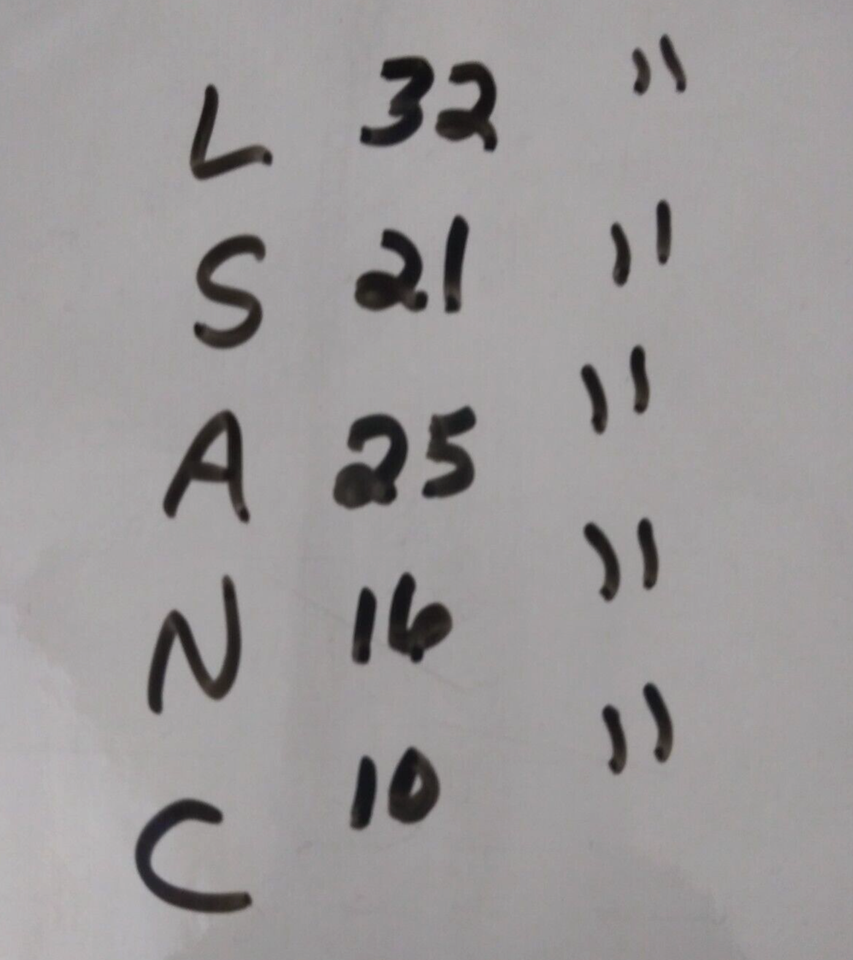 L 32 "
S 21 "
A 25 "
N 16 "
C 10 "